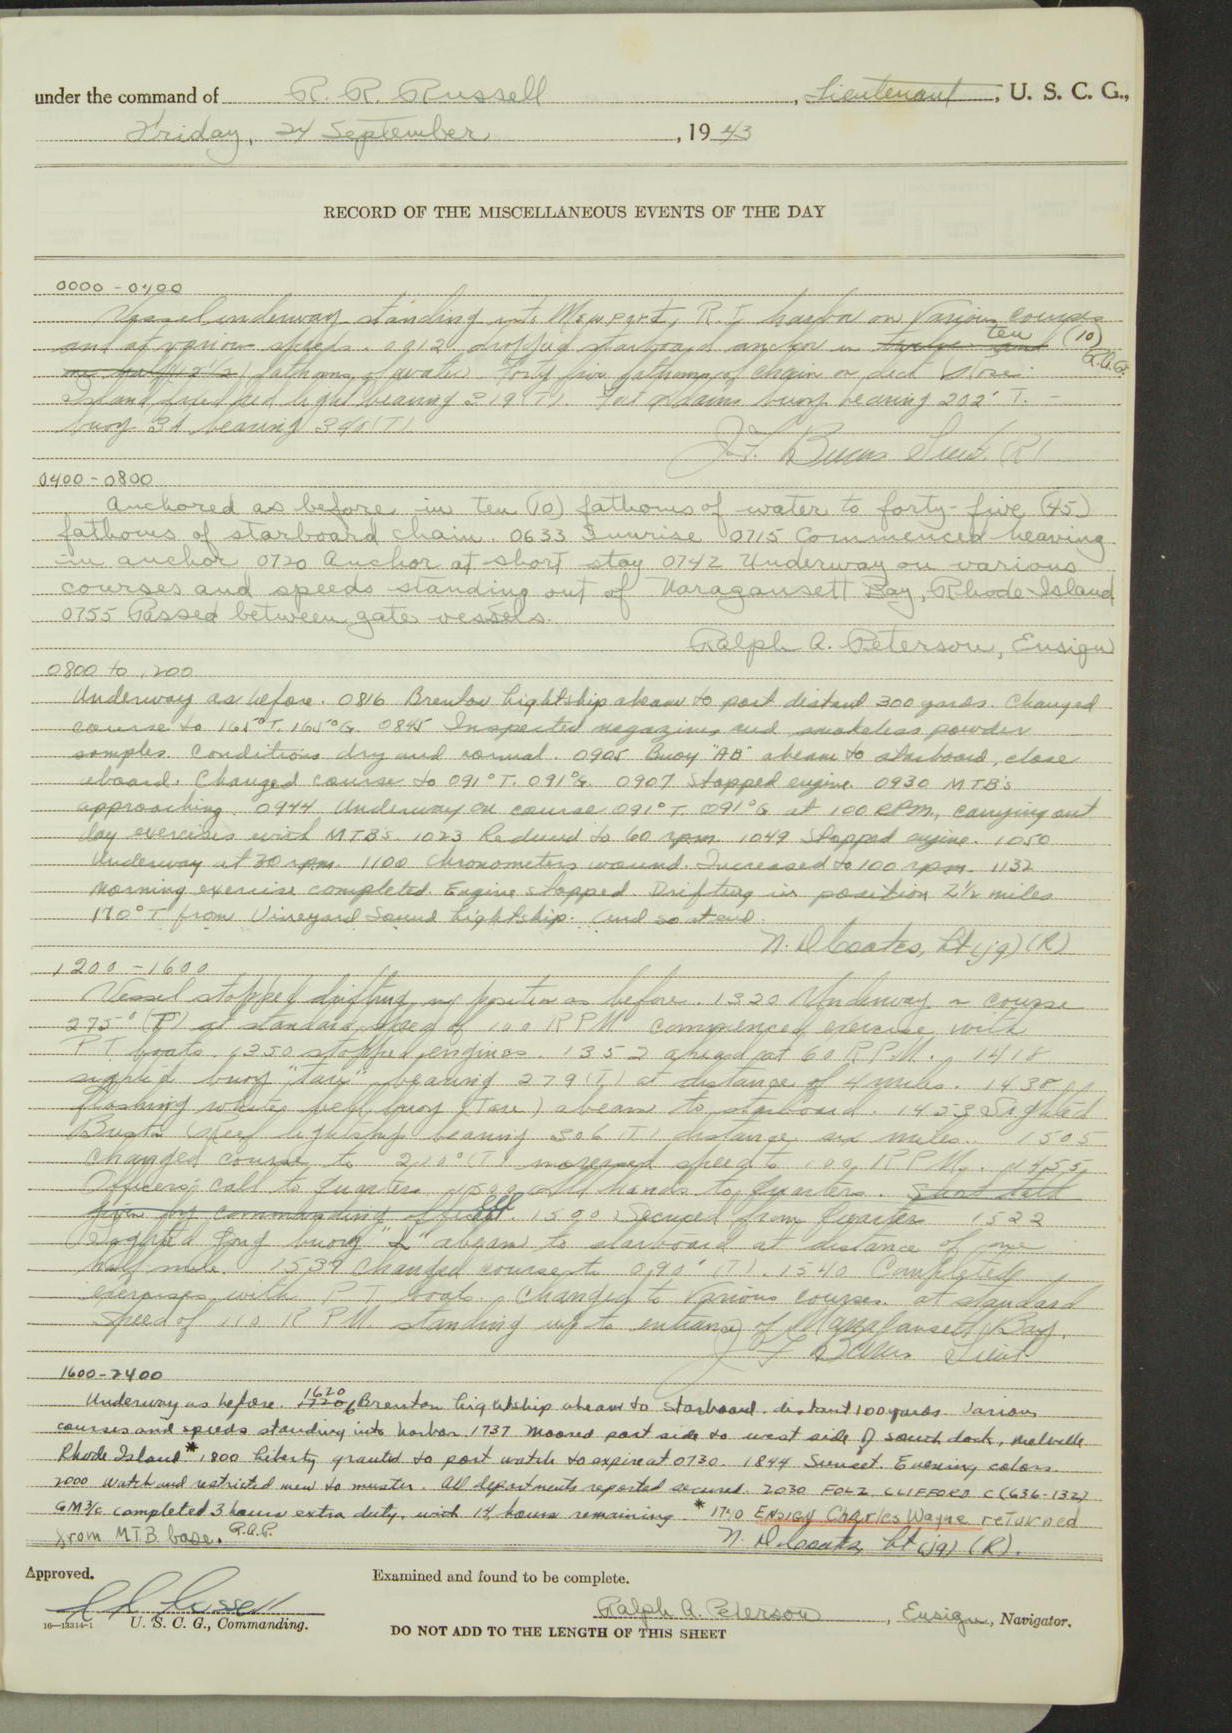 under the command of R. R. Russell, Lieutenant, U. S. C. G.,
Friday, 24 September, 1943
RECORD OF THE MISCELLANEOUS EVENTS OF THE DAY
0000 - 0400
Vessel underway standing into Newport, R.I. harbor on various courses
and at various speeds. 0212 dropped starboard anchor in twelve and ten (10)
one half (12 1/2) fathoms of water. Forty five fathoms of chain on deck R.A.P.
Island fixed red light bearing 319 (T). Fort Adams buoy bearing 202° T. -
buoy 3A bearing 340 (T)
J. F. Burns Lieut. (R)
0400 - 0800
Anchored as before in ten (10) fathoms of water to forty-five (45)
fathoms of starboard chain. 0633 Sunrise 0715 Commenced heaving
in anchor 0720 Anchor at short stay 0742 Underway on various
courses and speeds standing out of Naragansett Bay, Rhode Island
0755 Passed between gate vessels.
Ralph A. Peterson, Ensign
0800 to 1200
Underway as before. 0816 Brenton Lightship abeam to port distant 300 yards. Changed
course to 165°T. 165°G. 0845 Inspected magazines and smokeless powder
samples. Conditions dry and normal. 0905 Buoy "AB" abeam to starboard, close
aboard. Changed course to 091°T. 091°G. 0907 Stopped engine. 0930 MTB's
approaching. 0944 Underway on course 091°T. 091°G at 100 RPM, carrying out
day exercises with MTB's. 1023 Reduced to 60 rpm. 1049 Stopped engine. 1050
Underway at 30 rpm. 1100 Chronometers wound. Increased to 100 rpm. 1132
Morning exercise completed. Engine stopped. Drifting in position 2½ miles
170°T from Vineyard Sound Lightship. And so at end.
N. D. Coates, Lt (jg) (R)
1200 - 1600
Vessel stopped drifting in position as before. 1320 Underway on course
275° (T) at standard speed of 100 RPM commenced exercise with
PT boats. 1350 stopped engines. 1352 ahead at 60 R.P.M. 1418
sighted buoy "Tare" bearing 279 (T) at distance of 4 miles. 1438
flashing white bell buoy (Tare) abeam to starboard. 1453 Sighted
Reef lightship bearing 306 (T) distance six miles. 1505
changed course to 210° (T) increased speed to 100 R.P.M. 1455
Officers call to quarters 1500 All hands to quarters. Short talk
given by commanding officer. Secured from quarters 1522
Sighted Gong buoy abeam to starboard at distance of one
half mile. 1539 Changed course to 090° (T). 1540 Completed
exercises with PT boats. Changed to various courses at standard
speed of 110 R.P.M. standing up to entrance of Naragansett Bay.
J F Burns Lieut
1600-2400
Underway as before. 1620 Brenton Lightship abeam to starboard distant 100 yards. Various
courses and speeds standing into harbor. 1737 Moored port side to west side of south dock, Melville
Rhode Island * 1800 Liberty granted to port watch to expire at 0730. 1844 Sunset. Evening colors.
2000 Watch and restricted men to muster. All departments reported secured. 2030 FOLZ, CLIFFORD C (636-132)
GM3/c completed 3 hours extra duty, with 14 hours remaining. * 1740 Ensign Charles Wayne returned
from M.T.B. base. R.A.P. N. D. Coates, Lt (jg) (R).
Approved. Examined and found to be complete.
R R Russell Ralph A. Peterson, Ensign, Navigator.
16—13314-1 U. S. C. G., Commanding.
DO NOT ADD TO THE LENGTH OF THIS SHEET